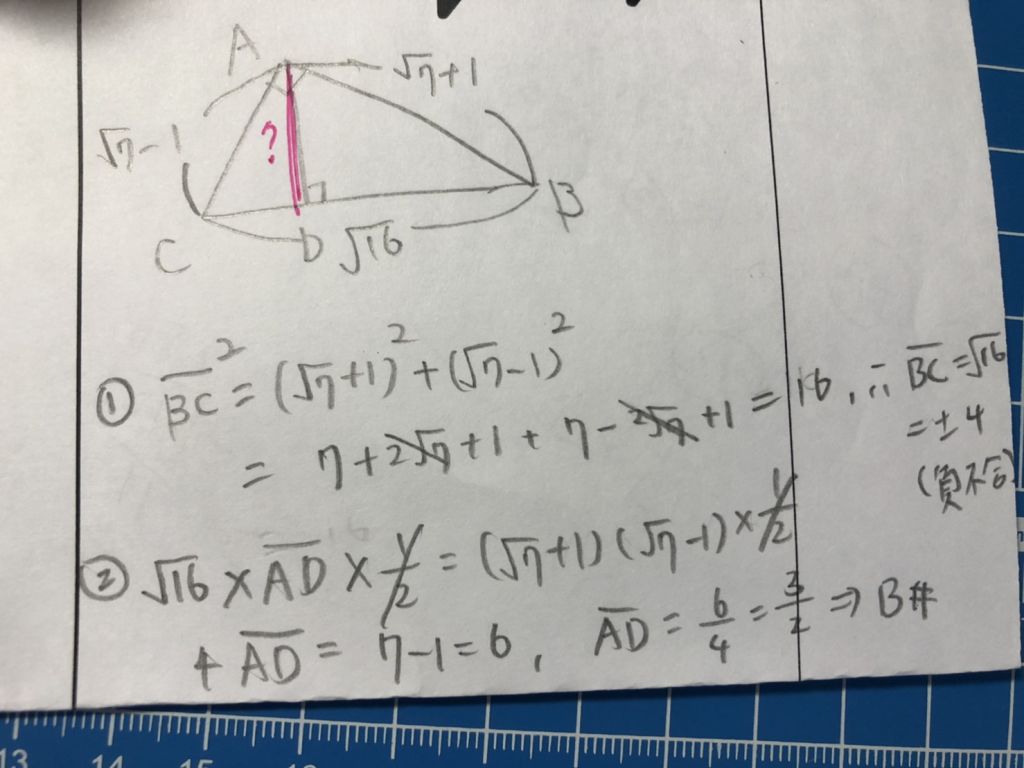 A
√7+1
√7-1
?
B
D
√16
C
① BC² = (√7+1)² + (√7-1)²
= 7+2√7+1 + 7-2√7+1 = 16, ∴ BC = √16
= ±4
(負不合)
② √16 × AD × 1/2 = (√7+1)(√7-1) × 1/2
4 AD = 7-1=6, AD = 6/4 = 3/2 ⇒ B#
13 14 15